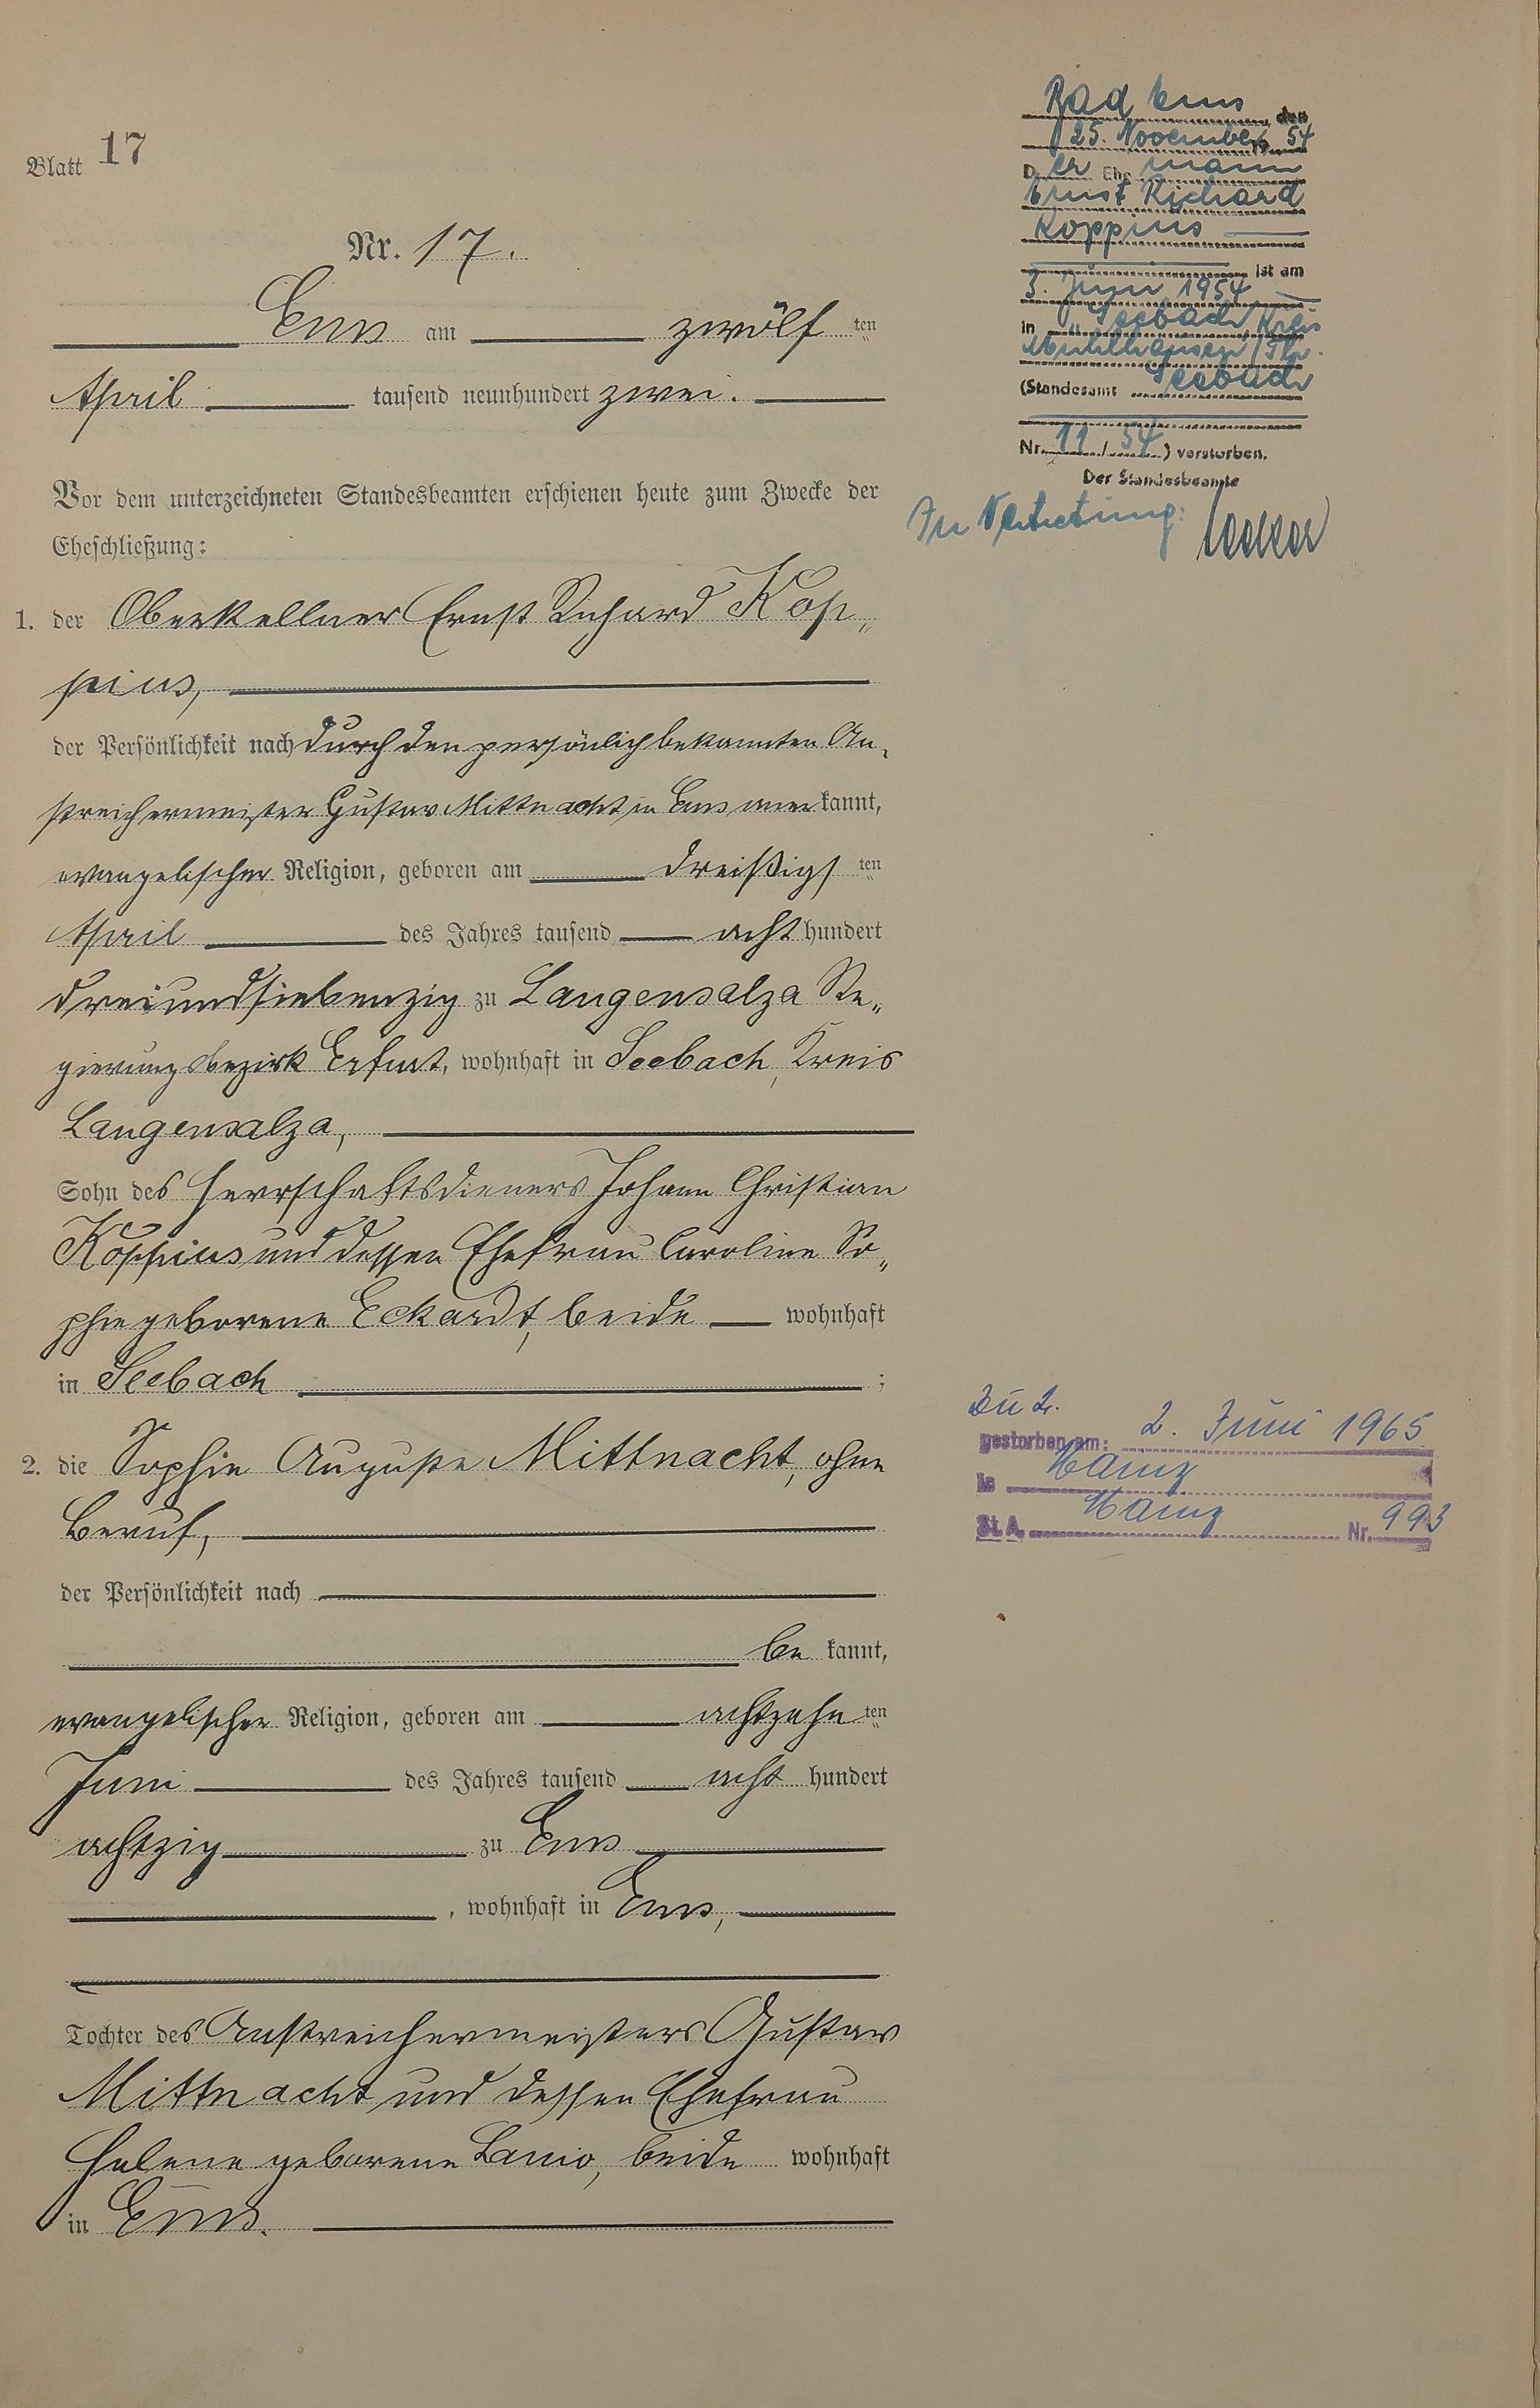 Blatt 17
Nr. 17.
Ems am zwölf ten
April tausend neunhundert zwei.
Vor dem unterzeichneten Standesbeamten erschienen heute zum Zwecke der
Eheschließung:
1. der Oberkellner Ernst Richard Kop„
pius,
der Persönlichkeit nach durch den persönlich bekannten An„
streichermeister Gustav Mittnacht in Ems aner kannt,
evangelischer Religion, geboren am dreißigs ten
April des Jahres tausend acht hundert
dreiundsiebenzig zu Langensalza Re„
gierungsbezirk Erfurt, wohnhaft in Seebach, Kreis
Langensalza,
Sohn des Herrschaftsdieners Johann Christian
Koppius und dessen Ehefrau Caroline So„
phie geborene Eckardt, beide wohnhaft
in Seebach ;
2. die Sophie Auguste Mittnacht, ohne
Beruf,
der Persönlichkeit nach
be kannt,
evangelischer Religion, geboren am achtzehn ten
Juni des Jahres tausend acht hundert
achtzig zu Ems
, wohnhaft in Ems,
Tochter des Anstreichermeisters Gustav
Mittnacht und dessen Ehefrau
Helene geborene Lanio, beide wohnhaft
in Ems.
Bad Ems, den
25. November 19 54
D er Ehe mann
Ernst Richard
Koppius
ist am
3. Juni 1954
in Seebach, Kreis
Mühlhausen/Th.
(Standesamt Seebach
Nr. 11 / 54 ) verstorben.
Der Standesbeamte
In Vertretung:
Zu 2.
gestorben am: 2. Juni 1965
in Mainz
St. A. Mainz Nr. 993